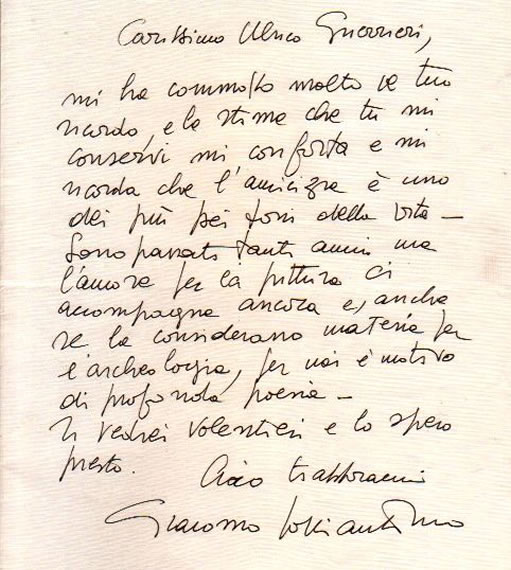 Carissimo Ulrico Guerrieri,
mi ha commosso molto il tuo
ricordo, e la stima che tu mi
conservi mi conforta e mi
ricorda che l'amicizia è uno
dei più bei doni della vita –
Sono passati tanti anni ma
l'amore per la pittura ci
accompagna ancora e, anche
se la considerano materia per
l'archeologia, per noi è motivo
di profonda poesia –
Ti vedrei volentieri e lo spero
presto.
Ciao t'abbraccio
Giacomo